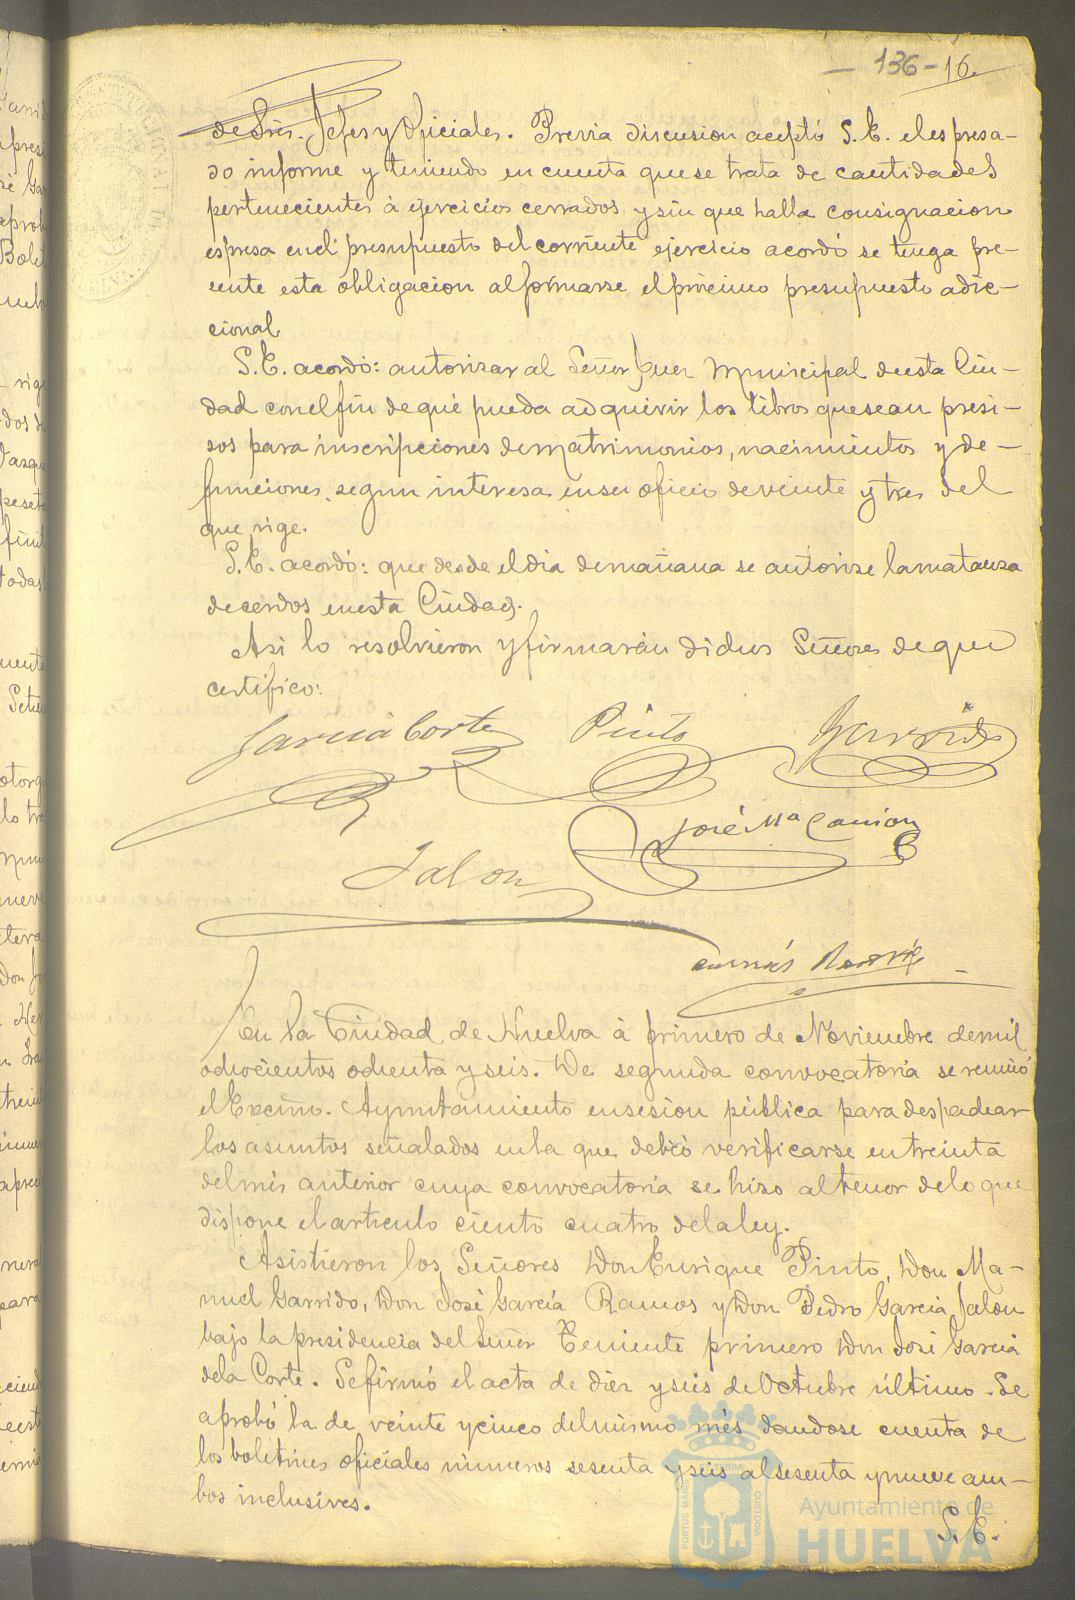 136 - 16.
de Sres. Jefes y Oficiales. Previa discusion aceptó S. E. el espresa-
do informe y teniendo en cuenta que se trata de cantidades
pertenecientes à ejercicios cerrados y sin que halla consignacion
espresa en el presupuesto del corriente ejercicio acordó se tenga pre-
sente esta obligacion al formarse el procimo presupuesto adic-
cional
S. E. acordó: autorizar al Señor Juez Municipal de esta Ciu-
dad con el fin de que pueda adquirir los libros que sean presi-
sos para inscripciones de matrimonios, nacimientos y de-
funciones, segun interesa en su oficio de veinte y tres del
que rige.
S. E. acordó: que desde el dia de mañana se autorise la matanza
de cerdos en esta Ciudad.
Asi lo resolvieron y firmarán dichos Señores de que
certifico:
Garcia Corte Pinto Garrido
José Mª
Jalon
En la Ciudad de Huelva à primero de Noviembre de mil
ochocientos ochenta y seis. De segunda convocatoria se reunió
el Excmo. Ayuntamiento en sesion pública para despachar
los asuntos señalados en la que debió verificarse en treinta
del mes anterior cuya convocatoria se hizo al tenor de lo que
dispone el articulo ciento cuatro de la ley.
Asistieron los Señores Don Enrique Pinto, Don Ma-
nuel Garrido, Don José Garcia Ramos y Don Pedro Garcia Jalon
bajo la presidencia del Señor Teniente primero Don José Garcia
de la Corte. Se firmó el acta de diez y seis de Octubre último. Se
aprobó la de veinte y cinco del mismo més dandose cuenta de
los boletines oficiales números sesenta y seis al sesenta y nueve am-
bos inclusives.
S. E.
PORTUS MARIS
CUSTODIA
Ayuntamiento de
HUELVA